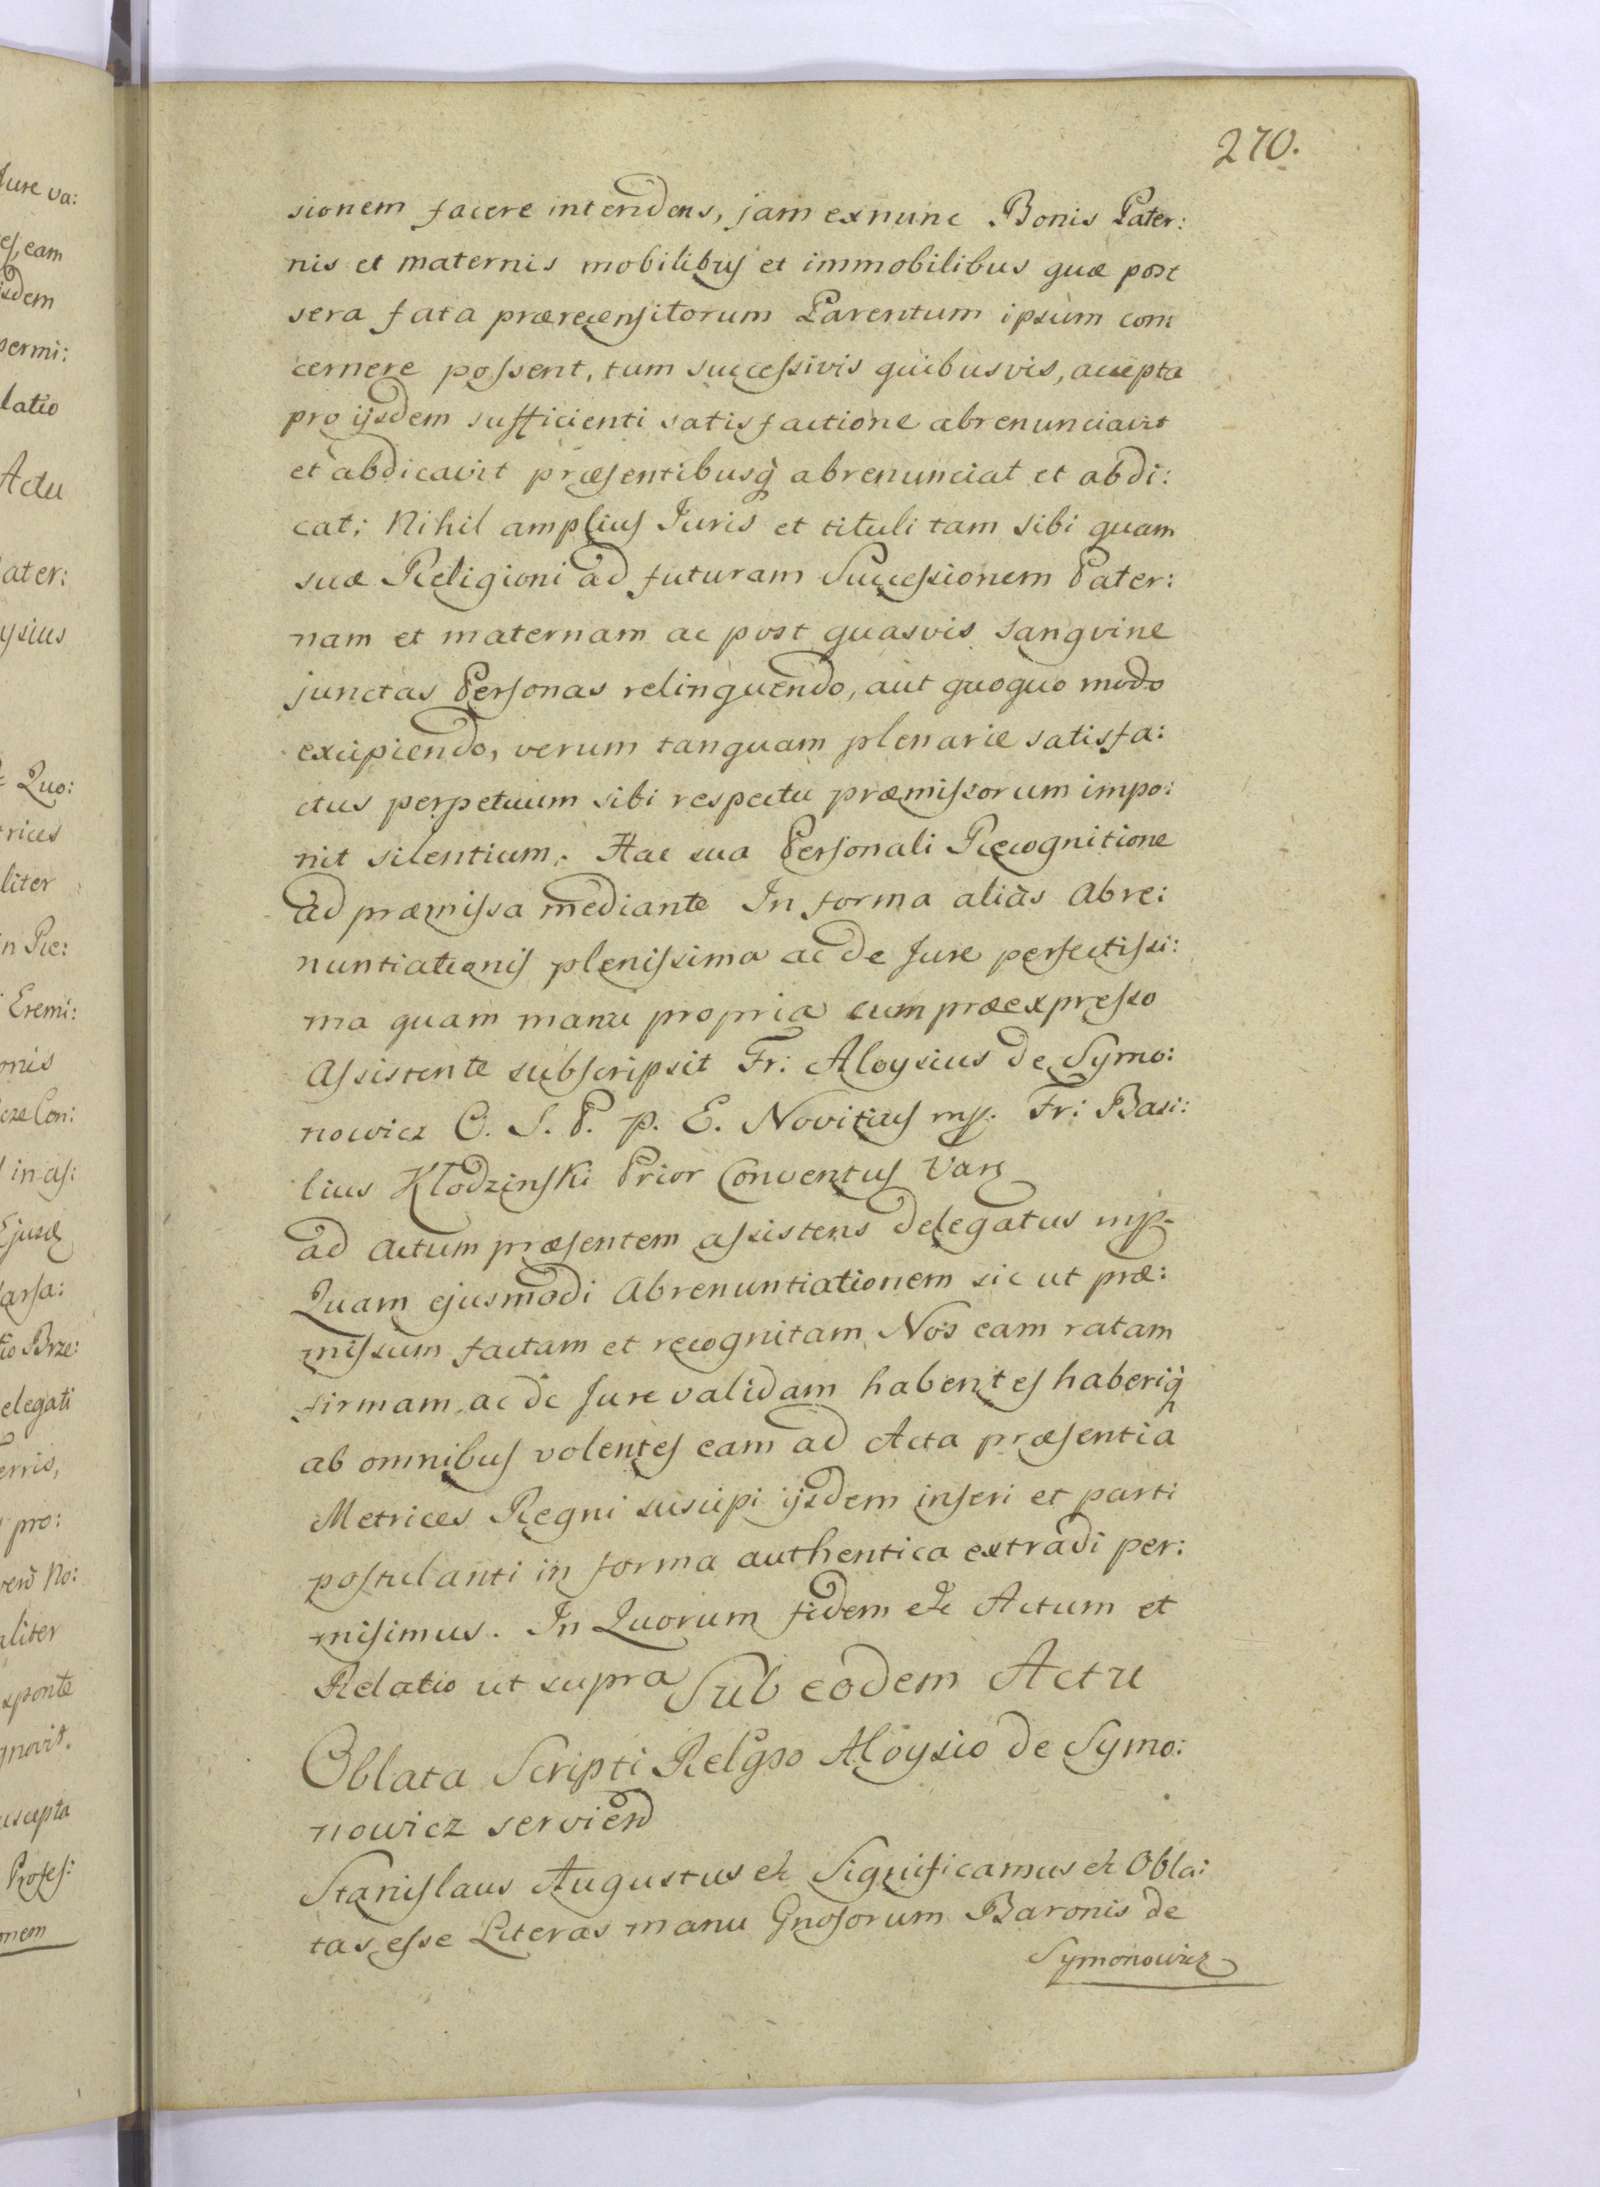 270.
sionem facere intendens, jam exnunc Bonis Pater:
nis et maternis mobilibus et immobilibus quæ post
sera fata præreçensitorum Parentum ipsum con
cernere possent, tum successivis quibusvis, accepta
pro ijsdem sufficienti satisfactione abrenunciavit
et abdicavit præsentibusq abrenunciat et abdi:
cat; Nihil amplius Juris et tituli tam sibi quam
suæ Religioni ad futuram Successionem Pater:
nam et maternam ac post quasvis sangvine
junctas Personas relinquendo, aut quoquo modo
excipiendo, verum tanquam plenarie satisfa:
ctus perpetuum sibi respectu præmissorum impo:
nit silentium. Hac sua Personali Recognitione
ad præmissa mediante In forma alias Abre:
nuntiationis plenissima ac de Jure perfectissi:
ma quam manu propria cum præexpresso
Assistente subscripsit Fr: Aloysius de Symo:
nowicz O. S. P. p. E. Novitius mp. Fr: Basi:
lius Kłodzinski Prior Conventus Vars
ad actum præsentem assistens delegatus mp.
Quam ejusmodi Abrenuntiationem sic ut præ:
missum factam et recognitam Nos eam ratam
firmam ac de Jure validam habentes haberiq
ab omnibus volentes eam ad Acta præsentia
Metrices Regni suscipi ijsdem inseri et parti
postulanti in forma authentica extradi per:
misimus. In Quorum fidem etc Actum et
Relatio ut supra Sub eodem Actu
Oblata Scripti Relgso Aloysio de Symo:
nowicz serviend
Stanislaus Augustus etc Significamus etc Obla:
tas esse Literas manu Gnosorum Baronis de
Symonowicz
Jure va:
es, eam
isdem
permi:
latio
Actu
ater:
ysius
Quo:
rices
liter
in Re:
Eremi:
onis
Con:
in as:
Ejusd
arsa:
tio Brze:
elegati
erris,
pro:
No:
aliter
sponte
gnovit.
uscepta
Profes:
onem